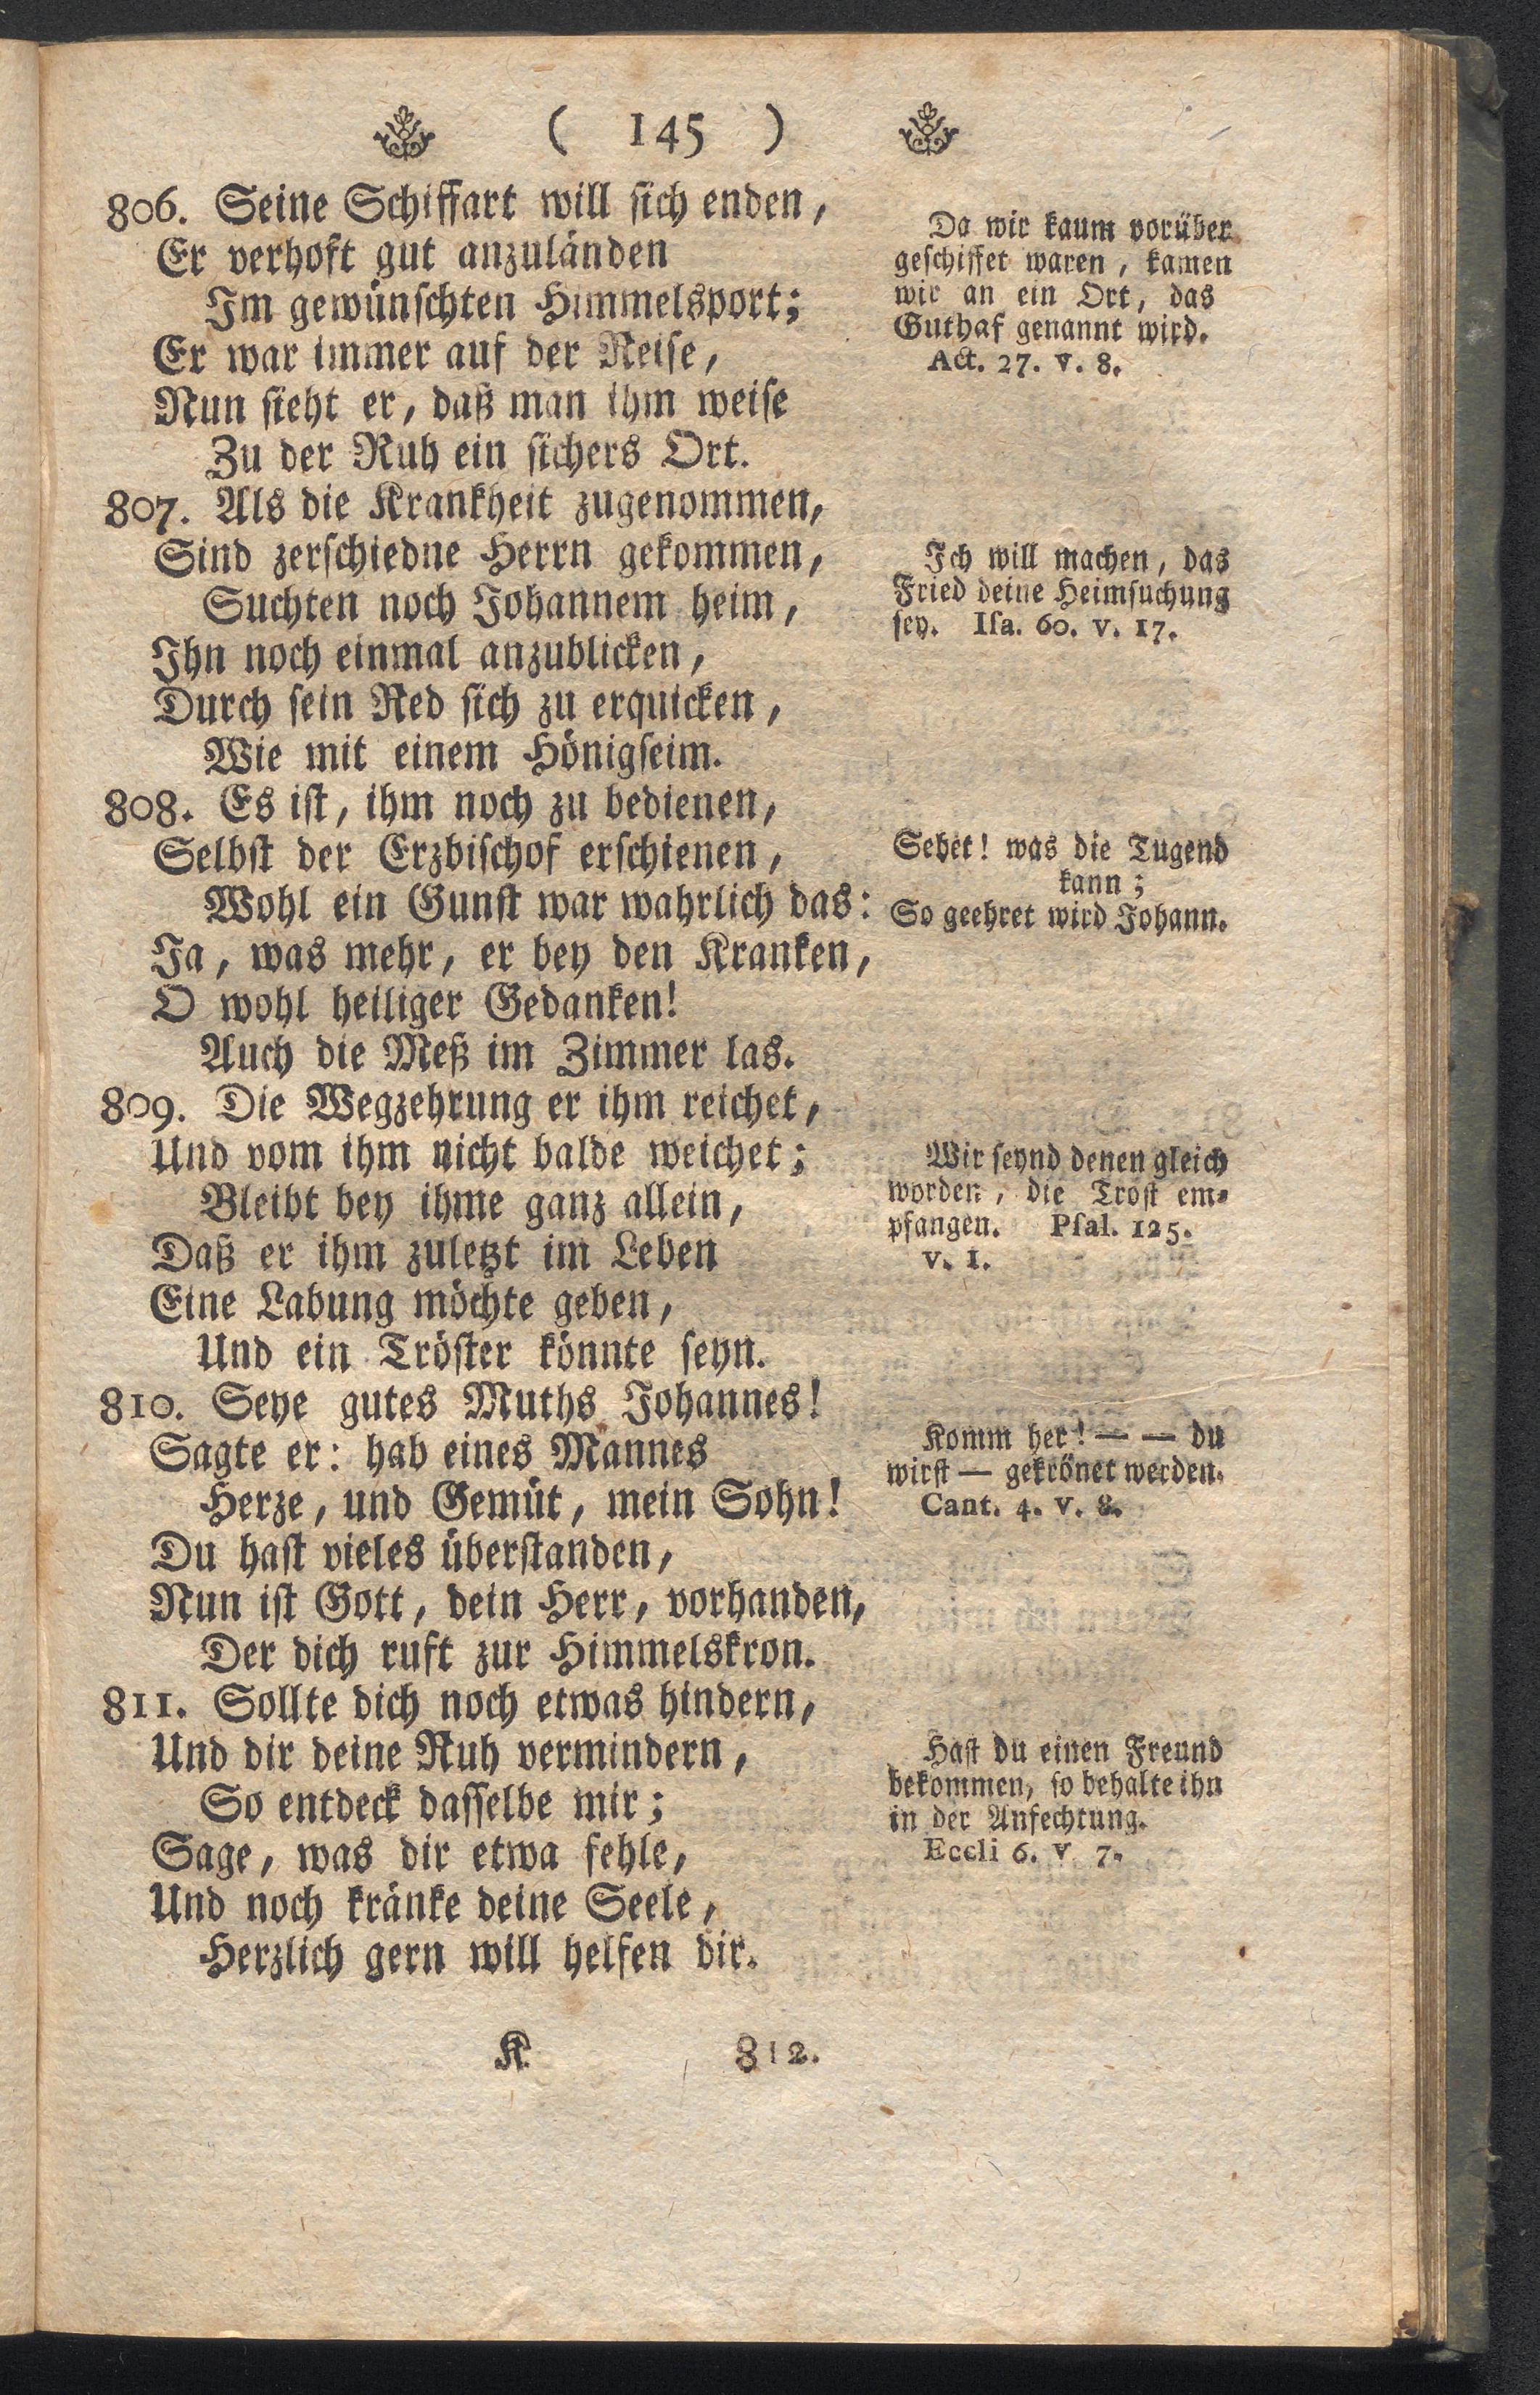 ( 145 )
806. Seine Schiffart will sich enden,
Er verhoft gut anzuländen
Im gewünschten Himmelsport;
Er war immer auf der Reise,
Nun sieht er, daß man ihm weise
Zu der Ruh ein sichers Ort.
807. Als die Krankheit zugenommen,
Sind zerschiedne Herrn gekommen,
Suchten noch Johannem heim,
Ihn noch einmal anzublicken,
Durch sein Red sich zu erquicken,
Wie mit einem Hönigseim.
808. Es ist, ihm noch zu bedienen,
Selbst der Erzbischof erschienen,
Wohl ein Gunst war wahrlich das:
Ja, was mehr, er bey den Kranken,
O wohl heiliger Gedanken!
Auch die Meß im Zimmer las.
809. Die Wegzehrung er ihm reichet,
Und vom ihm nicht balde weichet;
Bleibt bey ihme ganz allein,
Daß er ihm zuletzt im Leben
Eine Labung möchte geben,
Und ein Tröster könnte seyn.
810. Seye gutes Muths Johannes!
Sagte er: hab eines Mannes
Herze, und Gemüt, mein Sohn!
Du hast vieles überstanden,
Nun ist Gott, dein Herr, vorhanden,
Der dich ruft zur Himmelskron.
811. Sollte dich noch etwas hindern,
Und dir deine Ruh vermindern,
So entdeck dasselbe mir;
Sage, was dir etwa fehle,
Und noch kränke deine Seele,
Herzlich gern will helfen dir.
Da wir kaum vorüber
geschiffet waren, kamen
wir an ein Ort, das
Guthaf genannt wird.
Act. 27. v. 8.
Ich will machen, das
Fried deine Heimsuchung
sey. Isa. 60. v. 17.
Sehet! was die Tugend
kann;
So geehret wird Johann.
Wir seynd denen gleich
worden, die Trost em-
pfangen. Psal. 125.
v. 1.
Komm her! — — du
wirst — gekrönet werden.
Cant. 4. v. 8.
Hast du einen Freund
bekommen, so behalte ihn
in der Anfechtung.
Eccli 6. v 7.
K
812.